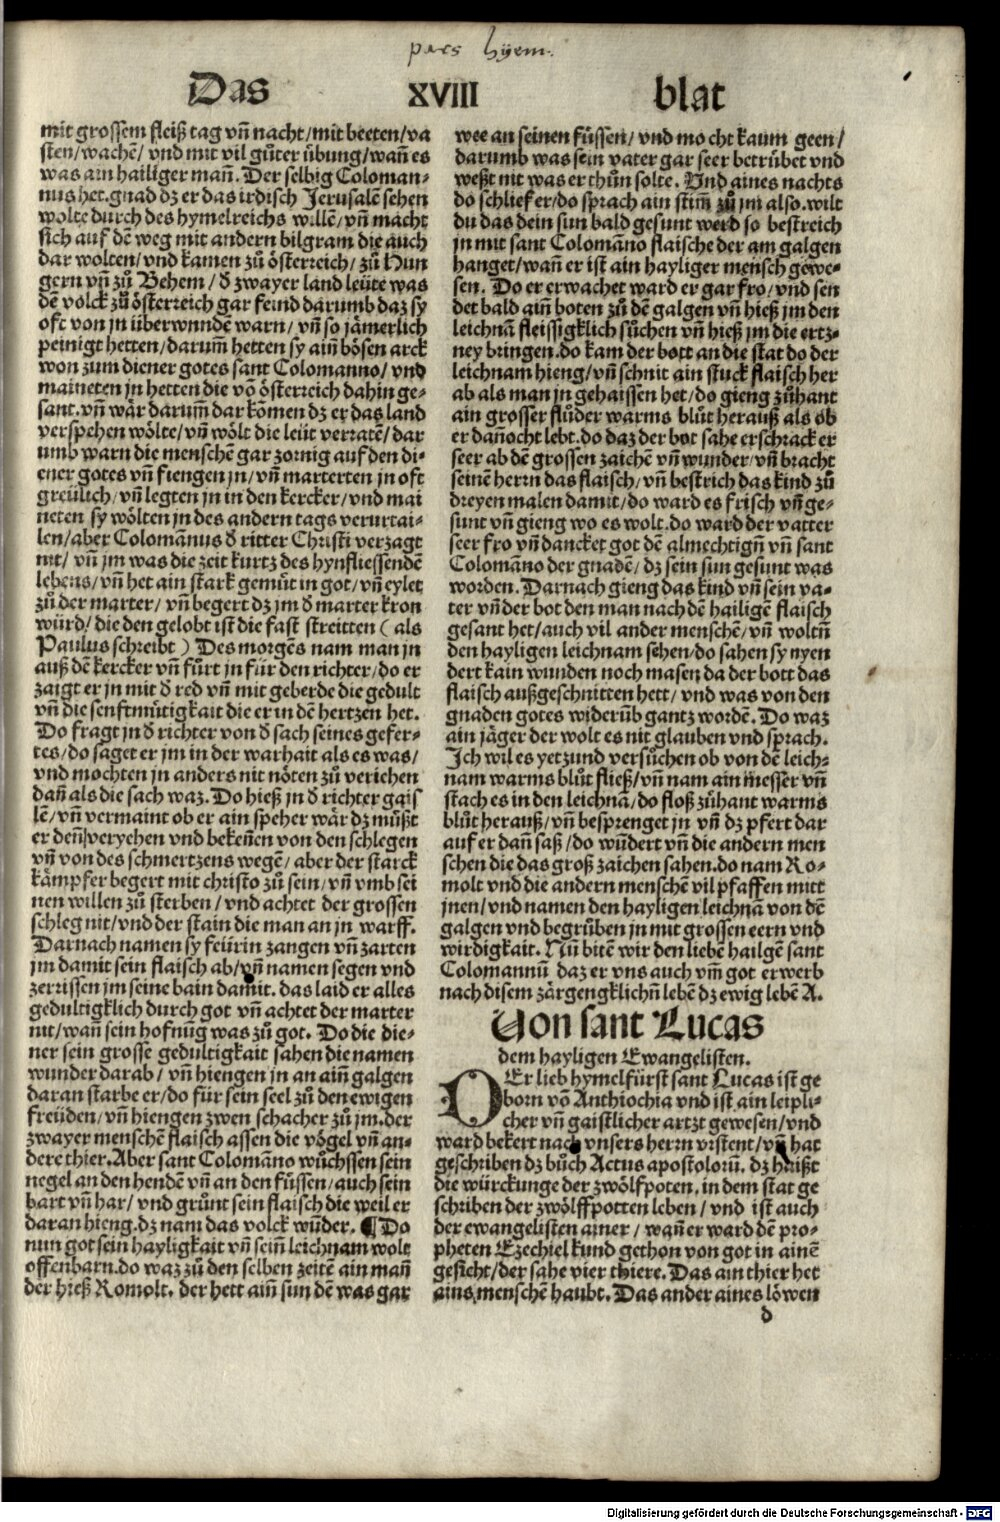 pars hyem.
Das XVIII blat
mit grossem fleiß tag vñ nacht/mit beeten/va
sten/wachẽ/ vnd mit vil gůter übung/wañ es
was ain hailiger mañ. Der selbig Coloman⸗
nus het.gnad dz er das irdisch Jerusalẽ sehen
wolte durch des hymelreichs willẽ/vñ macht
sich auf dẽ weg mit andern bilgram die auch
dar wolten/vnd kamen zů österreich/zů Hun
gern vñ zů Behem/ð zwayer land leüte was
dẽ volck zů österreich gar feind darumb daz sy
oft von jn überwundẽ warn/vñ so jämerlich
peinigt hetten/darum̃ hetten sy aiñ bösen arck
won zum diener gotes sant Colomanno/vnd
maineten jn hetten die võ österreich dahin ge⸗
sant.vñ wär darum̃ dar kõmen dz er das land
verspehen wölte/vñ wölt die leüt verratẽ/dar
umb warn die menschẽ gar zornig auf den di⸗
ener gotes vñ fiengen jn/vñ marterten jn oft
greülich/vñ legten jn in den kercker/vnd mai
neten sy wölten jn des andern tags verurtai⸗
len/aber Colomãnus ð ritter Christi verzagt
nit/vñ jm was die zeit kurtz des hynfliessendẽ
lebens/vñ het ain stark gemüt in got/vñ eylet
zů der marter/vñ begert dz jm ð marter kron
würd/die den gelobt ist die fast streitten (als
Paulus schreibt) Des morgẽs nam man jn
auß dẽ kercker vñ fůrt jn für den richter/do er
zaigt er jn mit ð red vñ mit geberde die gedult
vñ die senftmütigkait die er in dẽ hertzen het.
Do fragt jn ð richter von ð sach seines gefer⸗
tes/do saget er jm in der warhait als es was/
vnd mochten jn anders nit nöten zů verichen
dañ als die sach waz. Do hieß jn ð richter gais
lẽ/vñ vermaint ob er ain speher wär dz müßt
er deñ verychen vnd bekeñen von den schlegen
vñ von des schmertzens wegẽ/aber der starck
kämpfer begert mit christo zů sein/vñ vmb sei
nen willen zů sterben/vnd achtet der grossen
schleg nit/vnd der stain die man an jn warff.
Darnach namen sy feürin zangen vñ zarten
jm damit sein flaisch ab/vñ namen segen vnd
zerrissen jm seine bain damit. das laid er alles
gedultigklich durch got vñ achtet der marter
nit/wañ sein hofnũg was zů got. Do die die⸗
ner sein grosse gedultigkait sahen die namen
wunder darab/vñ hiengen jn an aiñ galgen
daran starbe er/do für sein seel zů den ewigen
freüden/vñ hiengen zwen schacher zů jm.der
zwayer menschẽ flaisch assen die vögel vñ an⸗
dere thier.Aber sant Colomãno wůchssen sein
negel an den hendẽ vñ an den füssen/auch sein
bart vñ har/vnd grůnt sein flaisch die weil er
daran hieng.dz nam das volck wũder. ¶ Do
nun got sein hayligkait vñ seiñ leichnam wolt
offenbarn.do waz zů den selben zeitẽ ain mañ
der hieß Romolt. der hett aiñ sun dẽ was gar
wee an seinen füssen/vnd mo cht kaum geen/
darumb was sein vater gar seer betrübet vnd
weßt nit was er thůn solte. Vnd aines nachts
do schlief er/do sprach ain stim̃ zů jm also.wilt
du das dein sun bald gesunt werd so bestreich
jn mit sant Colomãno flaische der am galgen
hanget/wañ er ist ain hayliger mensch gewe⸗
sen. Do er erwachet ward er gar fro/vnd sen
det bald aiñ boten zů dẽ galgen vñ hieß jm den
leichnã fleissigklich sůchen vñ hieß jm die ertz⸗
ney bringen.do kam der bott an die stat do der
leichnam hieng/vñ schnit ain stuck flaisch her
ab als man jn gehaissen het/do gieng zůhant
ain grosser flůder warms blůt herauß als ob
er dañocht lebt.do daz der bot sahe erschrack er
seer ab dẽ grossen zaichẽ vñ wunder/vñ bracht
seinẽ herrn das flaisch/vñ bestrich das kind zů
dreyen malen damit/do ward es frisch vñ ge⸗
sunt vñ gieng wo es wolt.do ward der vatter
seer fro vñ dancket got dẽ almechtigñ vñ sant
Colomãno der gnadẽ/dz sein sun gesunt was
worden. Darnach gieng das kind vñ sein va⸗
ter vñ der bot den man nach dẽ hailigẽ flaisch
gesant het/auch vil ander menschẽ/vñ woltñ
den hayligen leichnam sehen/do sahen sy nyen
dert kain wunden noch masen da der bott das
flaisch außgeschnitten hett/vnd was von den
gnaden gotes widerũb gantz wordẽ. Do waz
ain jäger der wolt es nit glauben vnd sprach.
Ich wil es yetzund versůchen ob von dẽ leich⸗
nam warms blůt fließ/vñ nam ain messer vñ
stach es in den leichnã/do floß zůhant warms
blůt herauß/vñ besprenget jn vñ dz pfert dar
auf er dañ saß/do wũdert vñ die andern men
schen die das groß zaichen sahen.do nam Ro⸗
molt vnd die andern menschẽ vil pfaffen mitt
jnen/vnd namen den hayligen leichnã von dẽ
galgen vnd begrůben jn mit grossen eern vnd
wirdigkait. Nũ bitẽ wir den liebẽ hailgẽ sant
Colomannũ daz er vns auch vm̃ got erwerb
nach disem zärgengklichñ lebẽ dz ewig lebẽ A.
Von sant Lucas
dem hayligen Ewangelisten.
DEr lieb hymelfürst sant Lucas ist ge
born võ Anthiochia vnd ist ain leipli⸗
cher vñ gaistlicher artzt gewesen/vnd
ward bekert nach vnsers herrn vrstent/vñ hat
geschriben dz bůch Actus apostolorũ. dz haißt
die würckunge der zwölfpoten, in dem stat ge
schriben der zwölffpotten leben/vnd ist auch
der ewangelisten ainer/wañ er ward dẽ pro⸗
pheten Ezechiel kund gethon von got in ainẽ
gesicht/der sahe vier thiere. Das ain thier het
ains menschẽ haubt. Das ander aines löwen
d
Digitalisierung gefördert durch die Deutsche Forschungsgemeinschaft - DFG